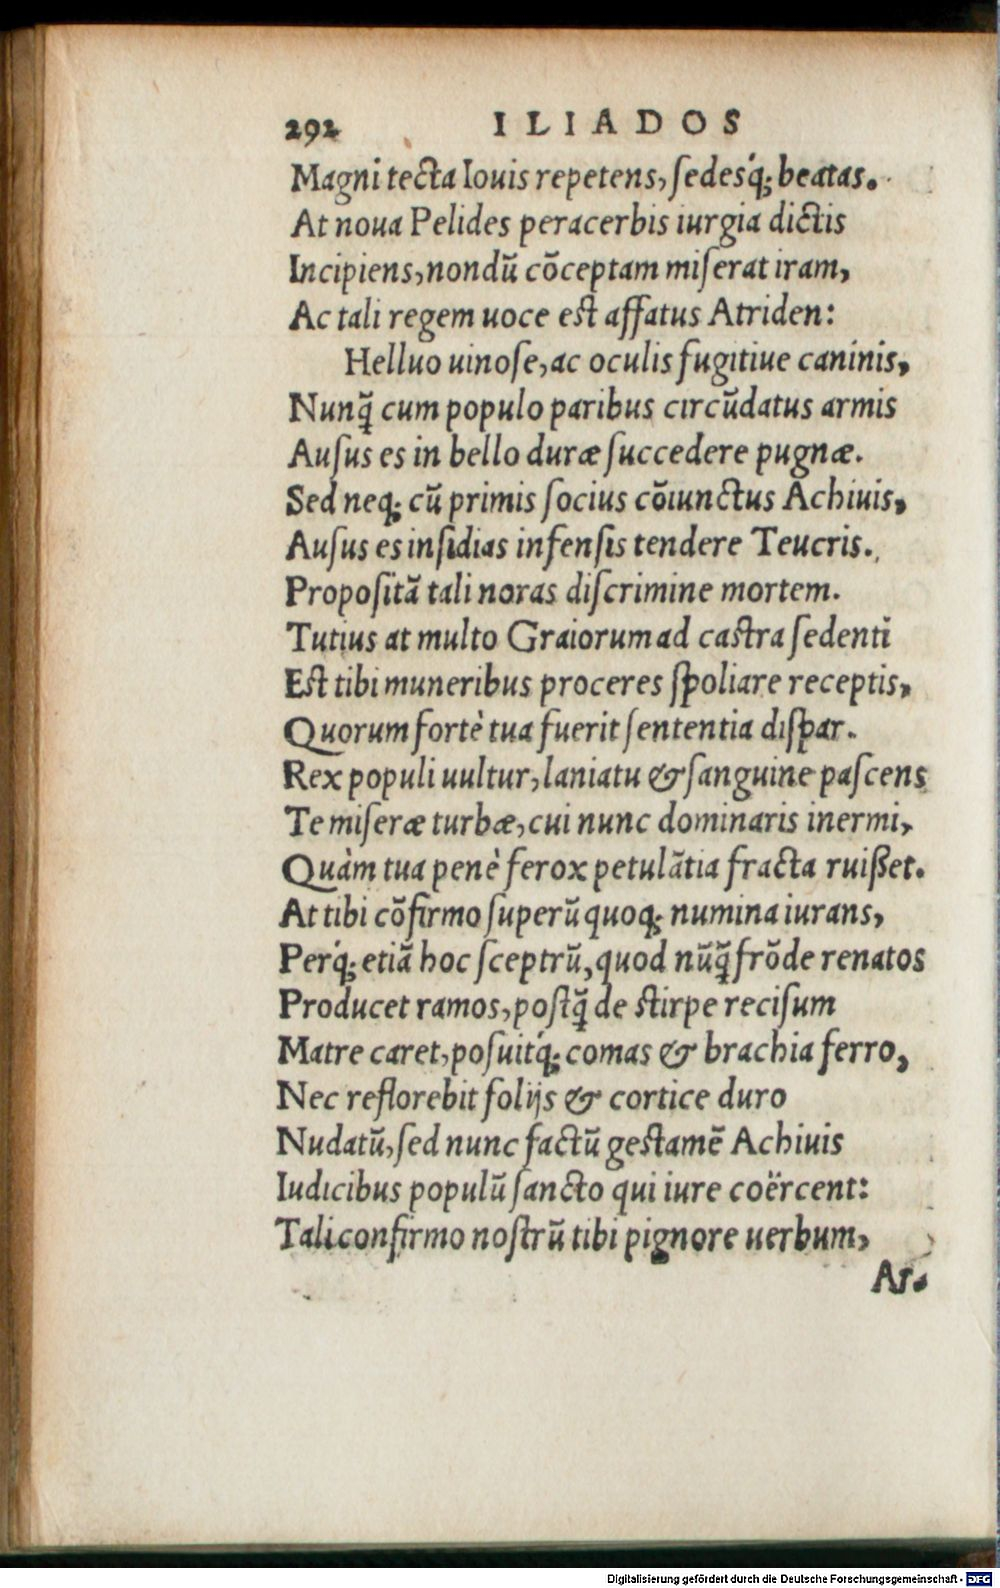 292 ILIADOS
Magni tecta Iouis repetens, sedesq́; beatas.
At noua Pelides peracerbis iurgia dictis
Incipiens, nondū cōceptam miserat iram,
Ac tali regem uoce est affatus Atriden:
Helluo uinose, ac oculis fugitiue caninis,
Nunq̄ cum populo paribus circūdatus armis
Ausus es in bello duræ succedere pugnæ.
Sed neq; cū primis socius cōiunctus Achiuis,
Ausus es insidias infensis tendere Teucris.
Propositā tali noras discrimine mortem.
Tutius at multo Graiorum ad castra sedenti
Est tibi muneribus proceres spoliare receptis,
Quorum fortè tua fuerit sententia dispar.
Rex populi uultur, laniatu & sanguine pascens
Te miseræ turbæ, cui nunc dominaris inermi,
Quàm tua penè ferox petulātia fracta ruißet.
At tibi cōfirmo superū quoq; numina iurans,
Perq́; etiā hoc sceptrū, quod nūq̄ frōde renatos
Producet ramos, postq̄ de stirpe recisum
Matre caret, posuitq́; comas & brachia ferro,
Nec reflorebit folijs & cortice duro
Nudatū, sed nunc factū gestamē Achiuis
Iudicibus populū sancto qui iure coërcent:
Tali confirmo nostrū tibi pignore uerbum,
Ar.
Digitalisierung gefördert durch die Deutsche Forschungsgemeinschaft - DFG